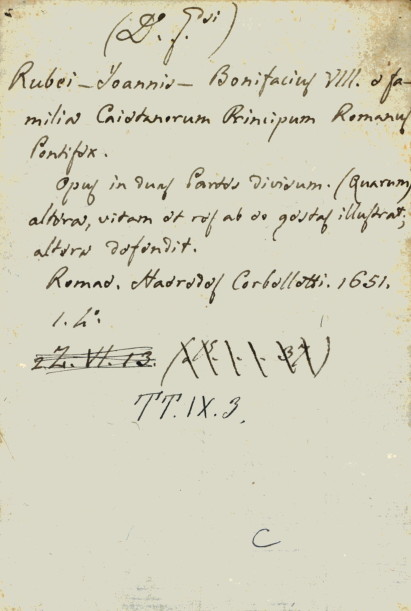 (D.r G.si)
Rubei – Joannis – Bonifacius VIII. e fa-
milia Caietanorum Principum Romanus
Pontifex.
Opus in duas Partes divisum. (Quarum
altera, vitam et res ab eo gestas illustrat;
altera defendit.
Romae. Haeredes Corbelletti. 1651.
TT. IX. 3.
C